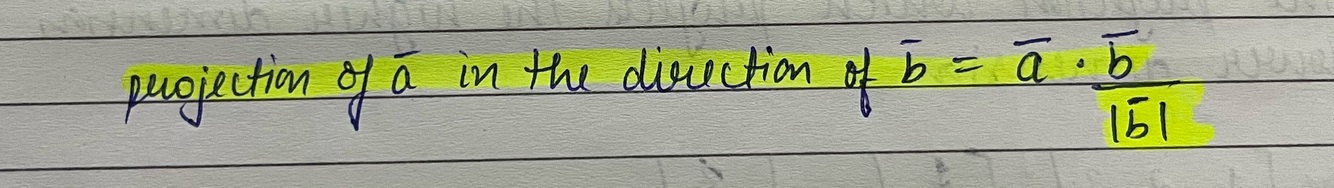 projection of a̅ in the direction of b̅ = a̅ · b̅
|b̅|